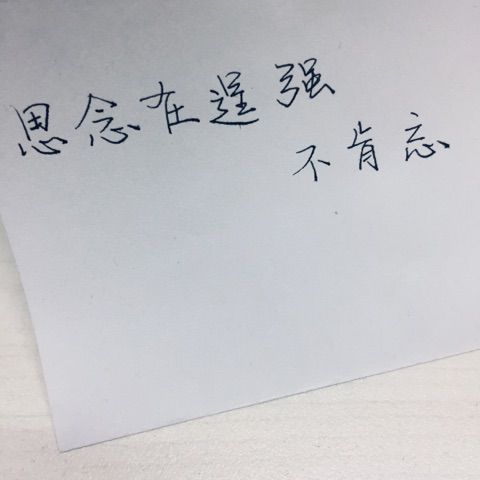 思念在逞强
不肯忘